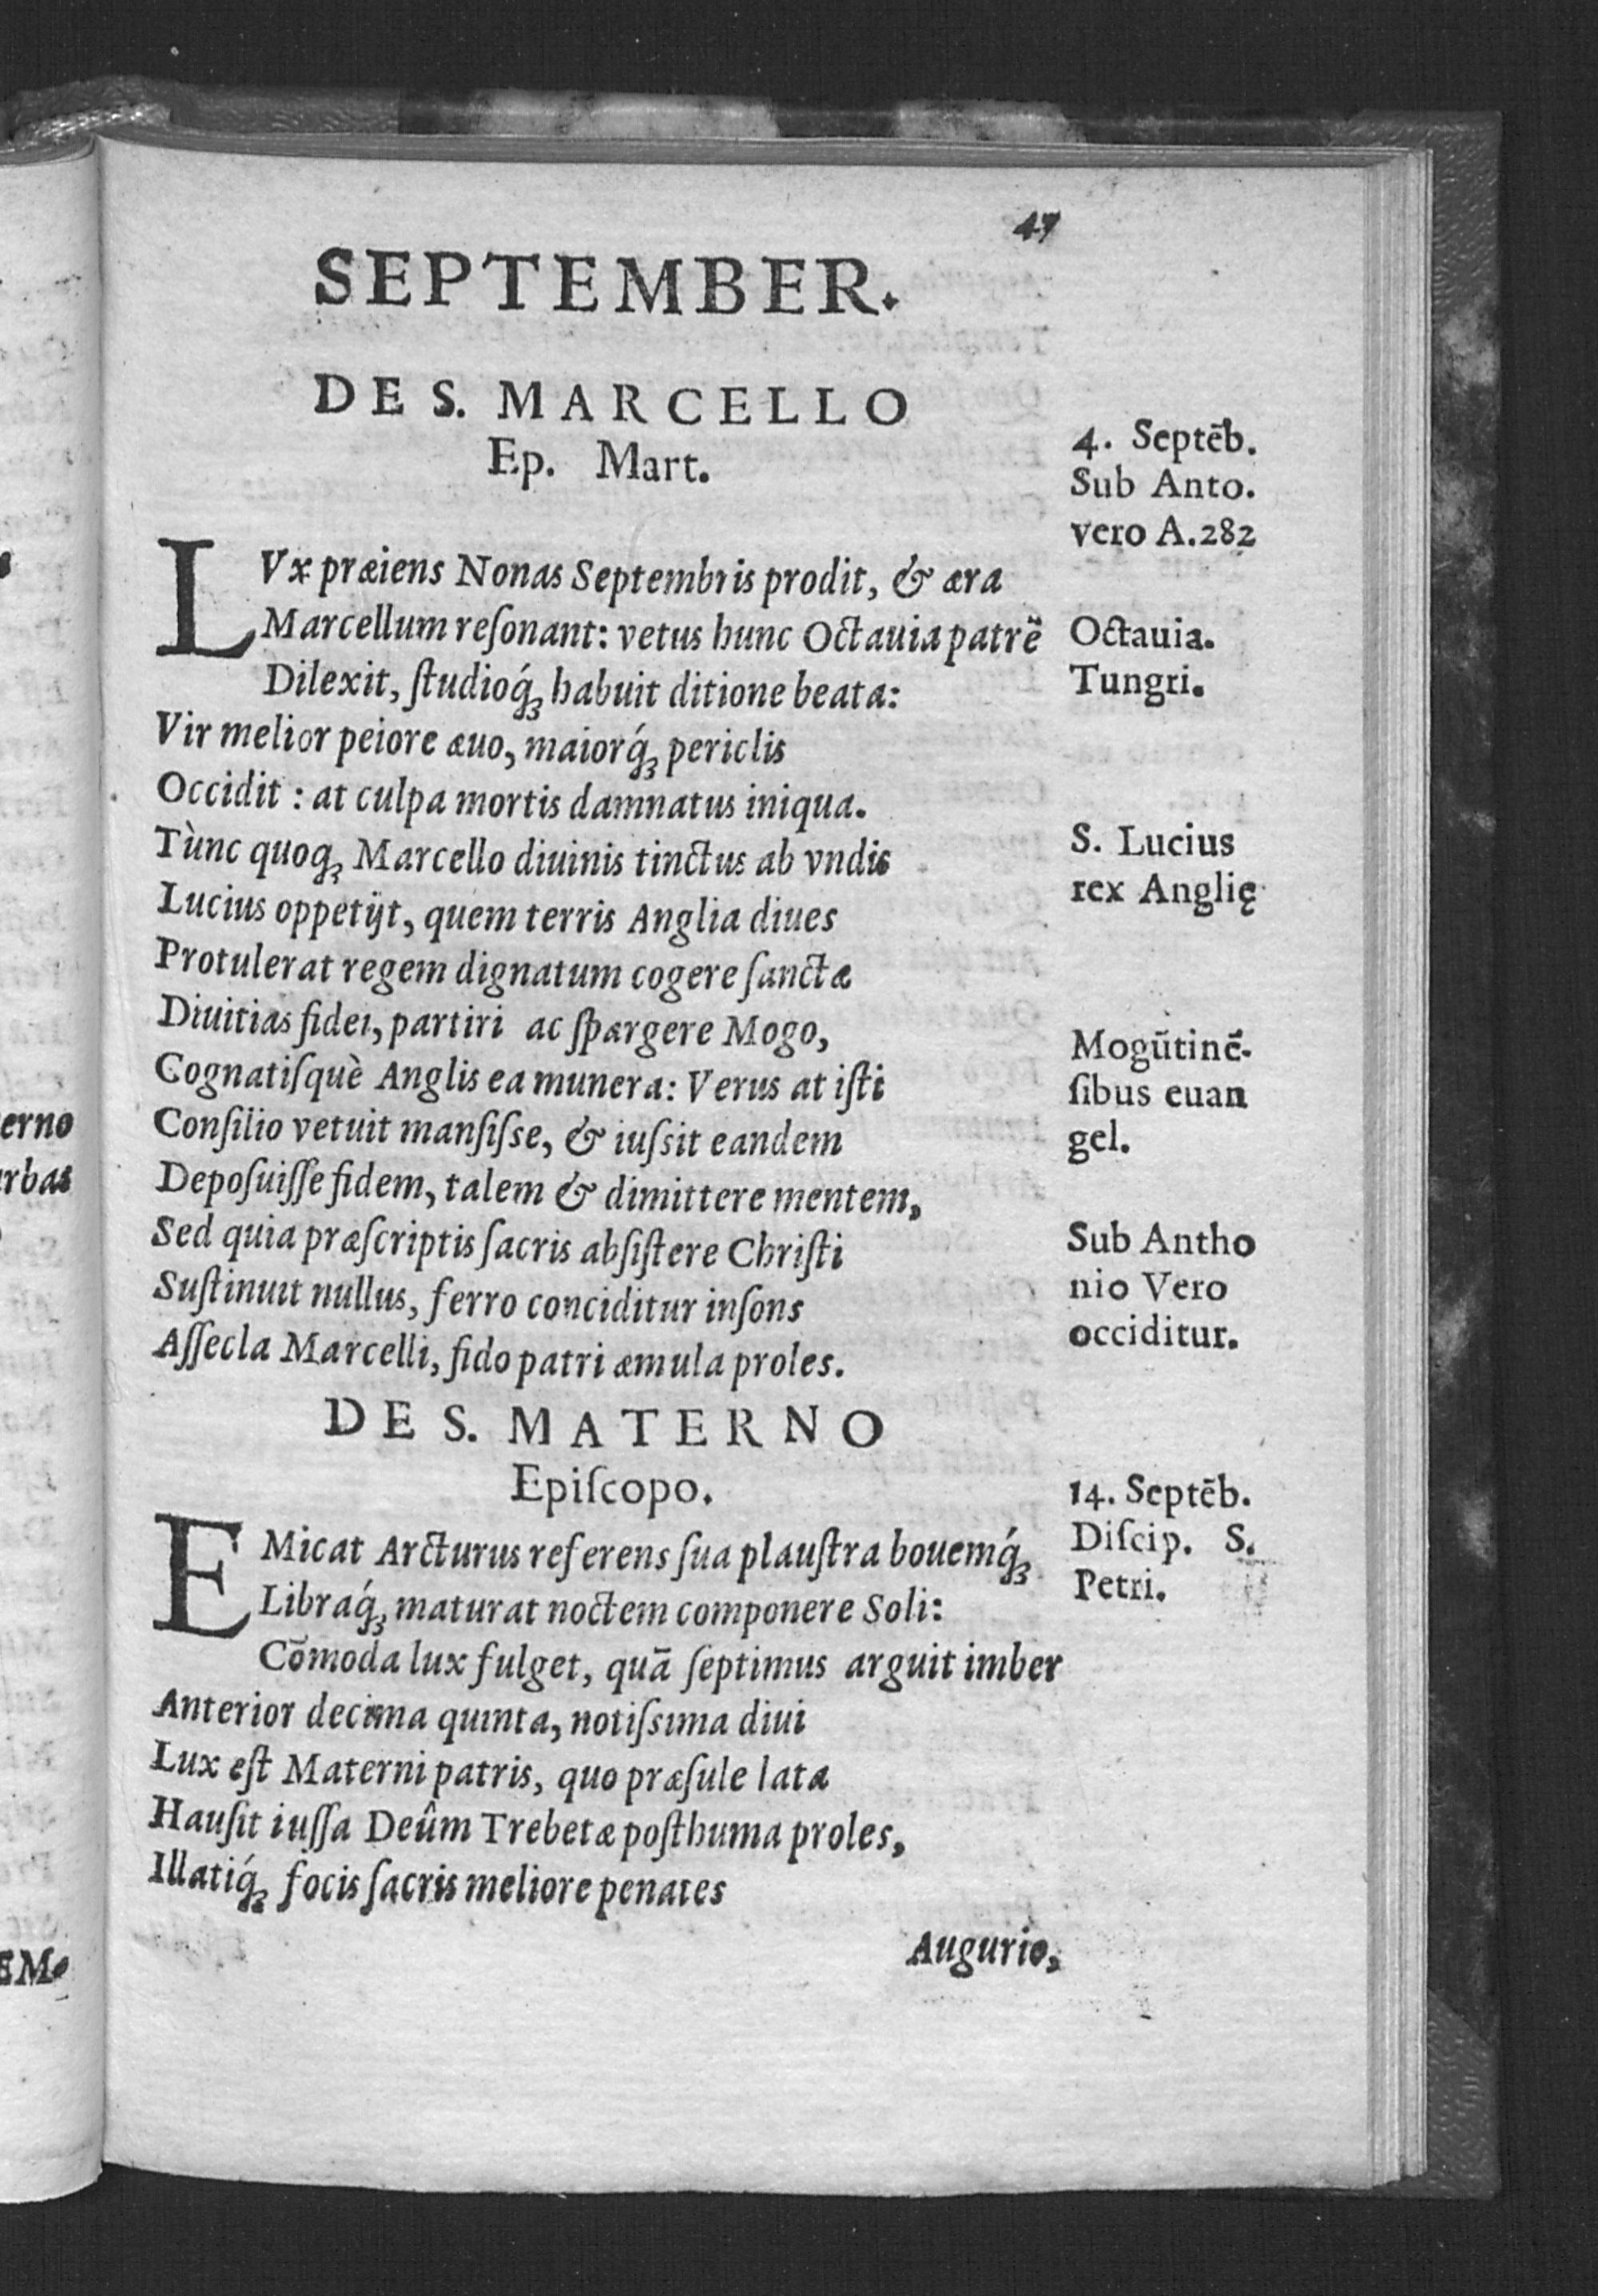 47
SEPTEMBER.
DE S. MARCELLO
Ep. Mart.
4. Septēb.
Sub Anto.
vero A.282
LVx præiens Nonas Septembris prodit, & æra
Marcellum reſonant: vetus hunc Octauia patrē
Octauia.
Dilexit, ſtudioq́ꝫ habuit ditione beata:
Tungri.
Vir melior peiore æuo, maiorq́ꝫ periclis
Occidit : at culpa mortis damnatus iniqua.
Tùnc quoqꝫ Marcello diuinis tinctus ab vndis
S. Lucius
Lucius oppetijt, quem terris Anglia diues
rex Anglię
Protulerat regem dignatum cogere ſanctæ
Diuitias fidei, partiri ac ſpargere Mogo,
Mogūtinē-
Cognatiſquè Anglis ea munera: Verus at iſti
ſibus euan
Conſilio vetuit manſiſse, & iuſsit eandem
gel.
Depoſuiſſe fidem, talem & dimittere mentem,
Sed quia præſcriptis ſacris abſiſtere Chriſti
Sub Antho
Suſtinuit nullus, ferro conciditur inſons
nio Vero
Aſſecla Marcelli, fido patri æmula proles.
occiditur.
DE S. MATERNO
Epiſcopo.
14. Septēb.
EMicat Arcturus referens ſua plauſtra bouemq́ꝫ
Diſcip. S.
Libraq́ꝫ maturat noctem componere Soli:
Petri.
Cōmoda lux fulget, quā ſeptimus arguit imber
Anterior decima quinta, notiſsima diui
Lux eſt Materni patris, quo præſule lata
Hauſit iuſſa Deûm Trebetæ poſthuma proles,
Illatiq́ꝫ focis ſacris meliore penates
Augurio,
erno
rbas
EM.